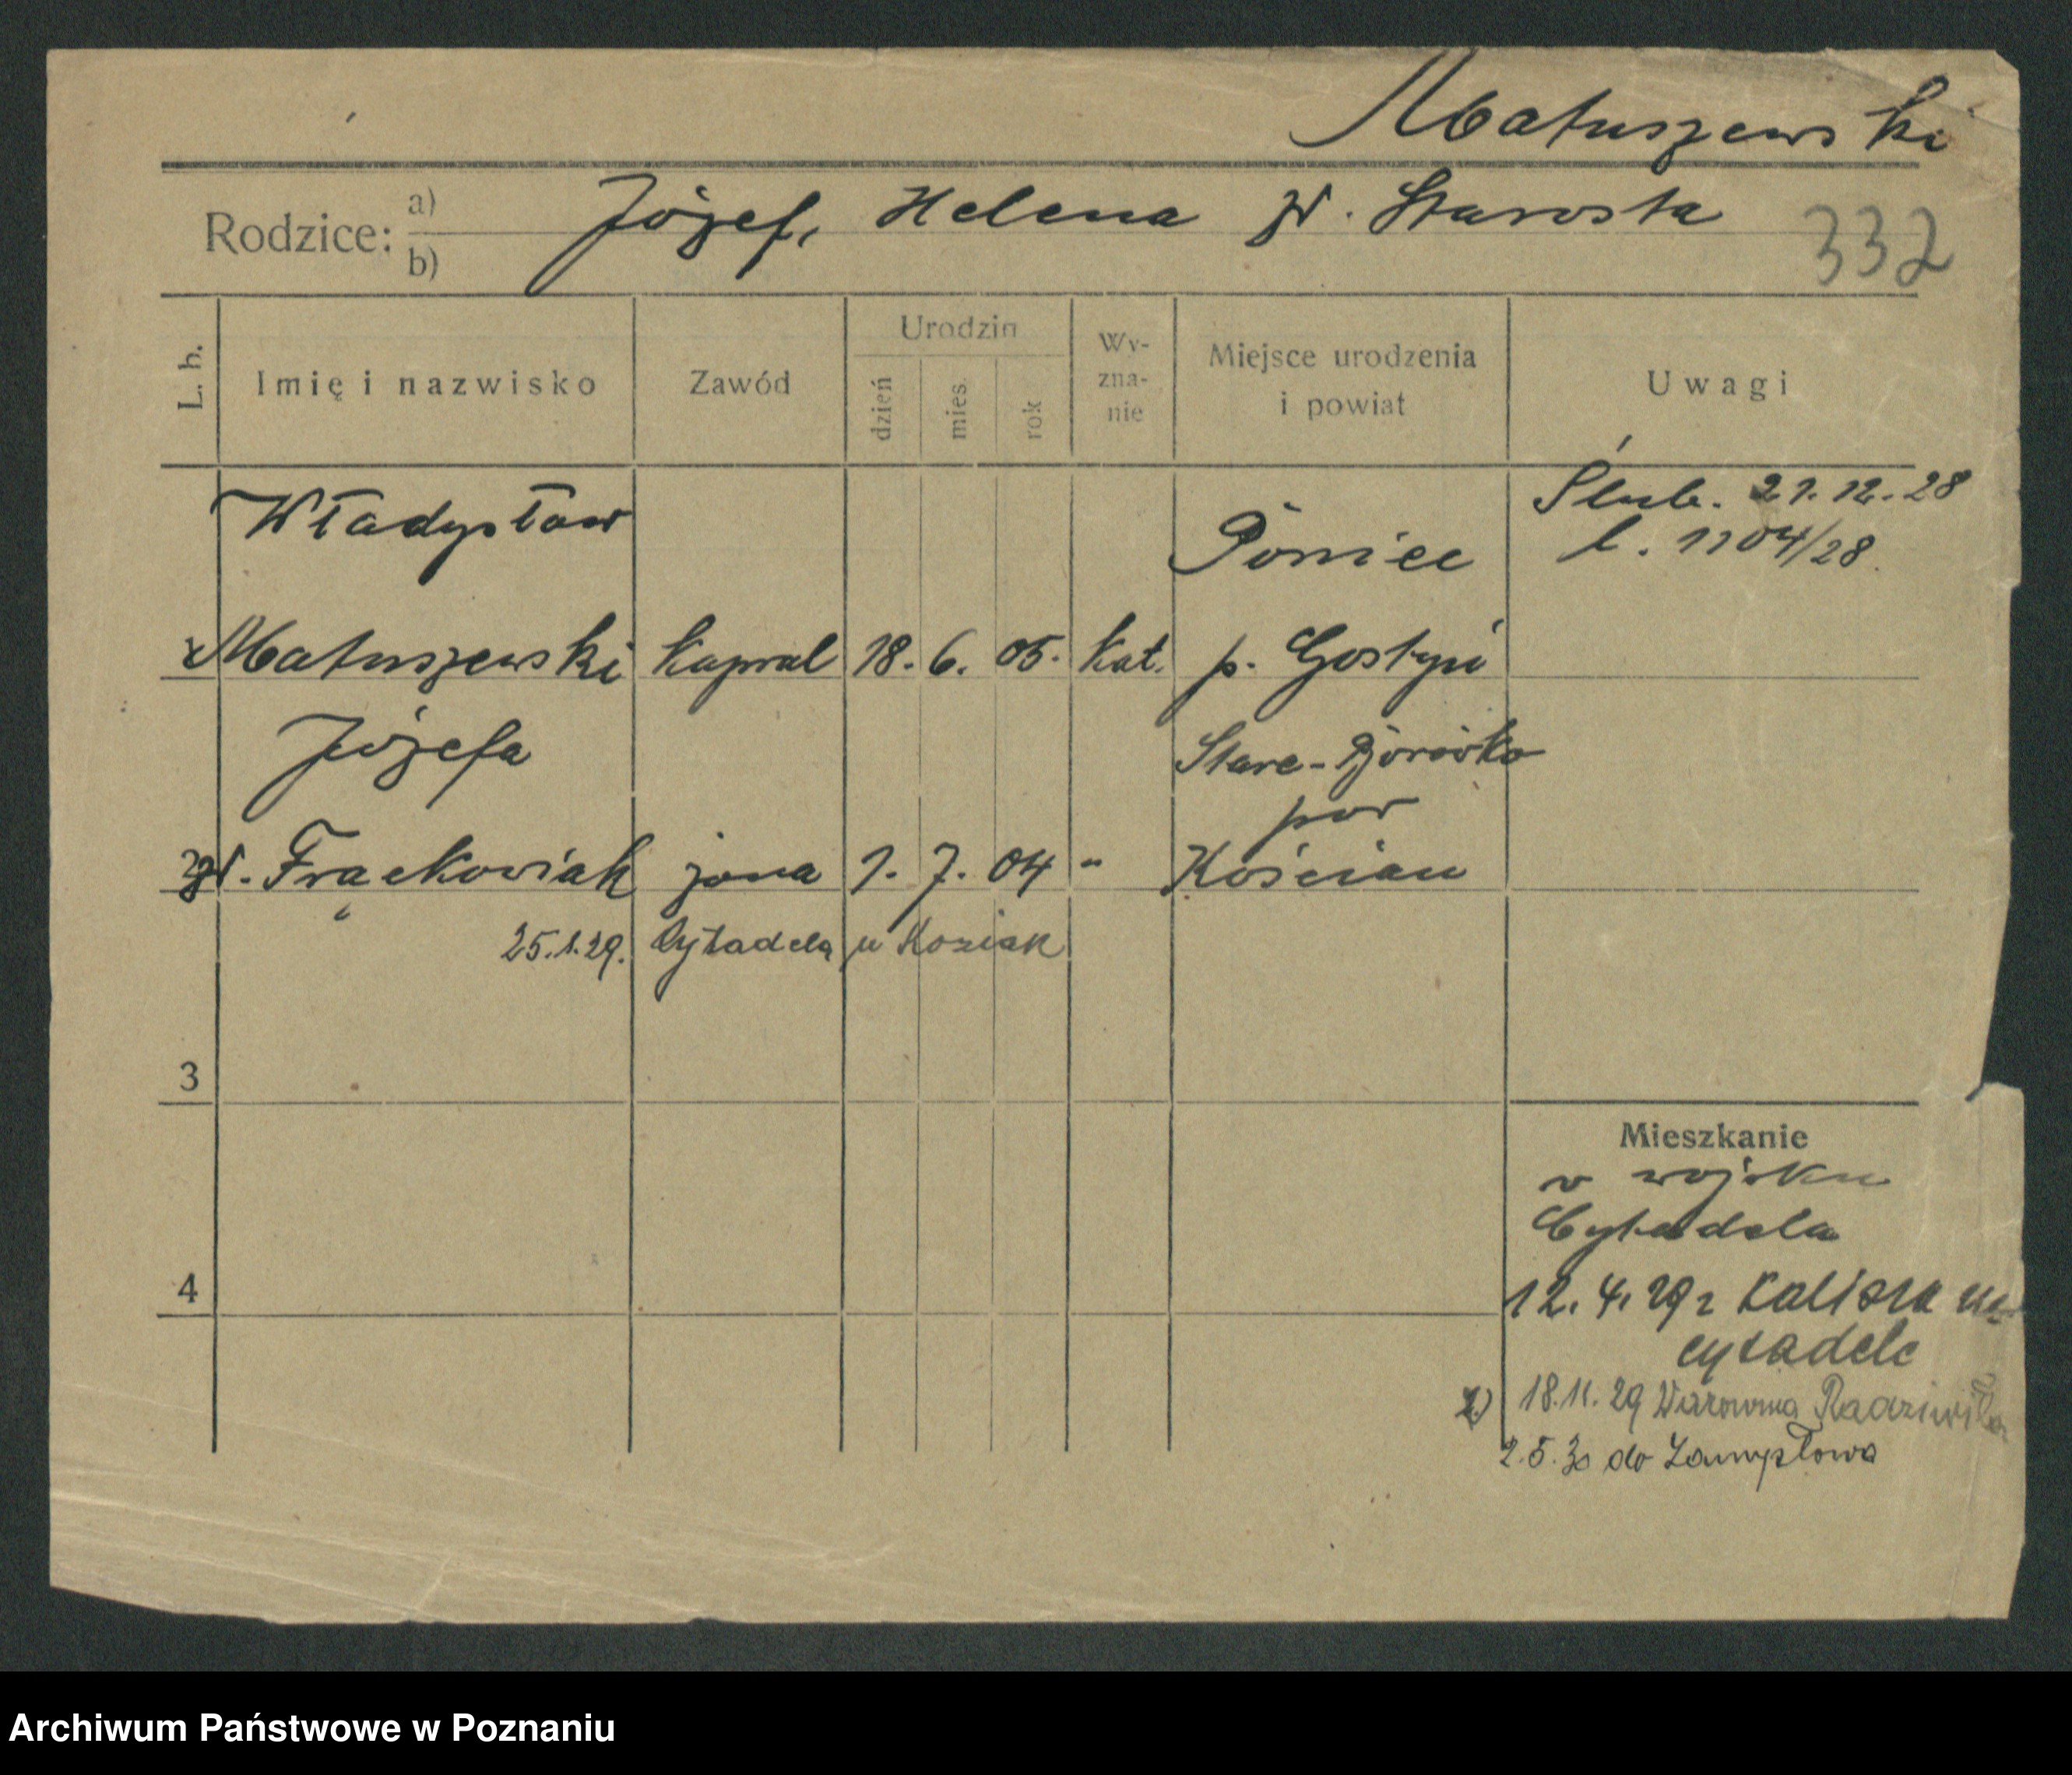 Matuszewski
Rodzice: a) b) Józef, Helena zd. Starosta
332
L. b. Imię i nazwisko Zawód Urodzin dzień mies. rok Wy-zna-nie Miejsce urodzenia i powiat Uwagi
Władysław Poniec Ślub. 21.12.28
l. 1104/28.
Matuszewski kapral 18. 6. 05. kat. p. Gostyń
Józefa Stare-
pow
zd. Frąckowiak żona 1. 7. 04 " Kościan
25.1.29. Cytadela u Koziak
3
Mieszkanie
w wojsku
Cytadela
4
12. 4. 29 z Kalisza na
cytadele
2) 18.11.29 Warownia Radziwiłła
2.5.30 do Zamysłowa
Archiwum Państwowe w Poznaniu